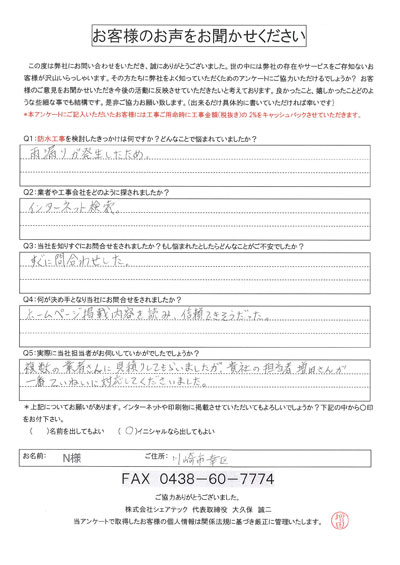 お客様のお声をお聞かせください
この度は弊社にお問い合わせをいただき、誠にありがとうございました。世の中には弊社の存在やサービスをご存知ないお
客様が沢山いらっしゃいます。その方たちに弊社をよく知っていただくためのアンケートにご協力いただけるでしょうか？ お客
様のご意見をお聞かせいただき今後の活動に反映させていただきたいと考えております。良かったこと、嬉しかったことどのよ
うな些細な事でも結構です。是非ご協力お願い致します。（出来るだけ具体的に書いていただければ幸いです）
*本アンケートにご記入いただいたお客様には工事ご用命時に工事金額(税抜き)の 2%をキャッシュバックさせていただきます。
Q1:防水工事を検討したきっかけは何ですか？どんなことで悩まれていましたか？
雨漏りが発生したため。
Q2:業者や工事会社をどのように探されましたか？
インターネット検索。
Q3:当社を知りすぐにお問合せをされましたか？もし悩まれたとしたらどんなことがご不安でしたか？
すぐに問合わせした。
Q4:何が決め手となり当社にお問合せをされましたか？
ホームページ掲載内容を読み、信頼できそうだった。
Q5:実際に当社担当者がお伺いしていかがでしたでしょうか？
複数の業者さんに見積りしてもらいましたが、貴社の担当者 増田さんが
一番ていねいに対応してくださいました。
＊上記についてお願いがあります。インターネットや印刷物に掲載させていただいてもよろしいでしょうか？下記の中から〇印
をお付下さい。
（　）名前を出してもよい （〇）イニシャルなら出してもよい
お名前: N様 ご住所: 川崎市幸区
FAX 0438-60-7774
ご協力ありがとうございました。
株式会社シェアテック 代表取締役 大久保 誠二
当アンケートで取得したお客様の個人情報は関係法規に基づき厳正に管理いたします。
増田